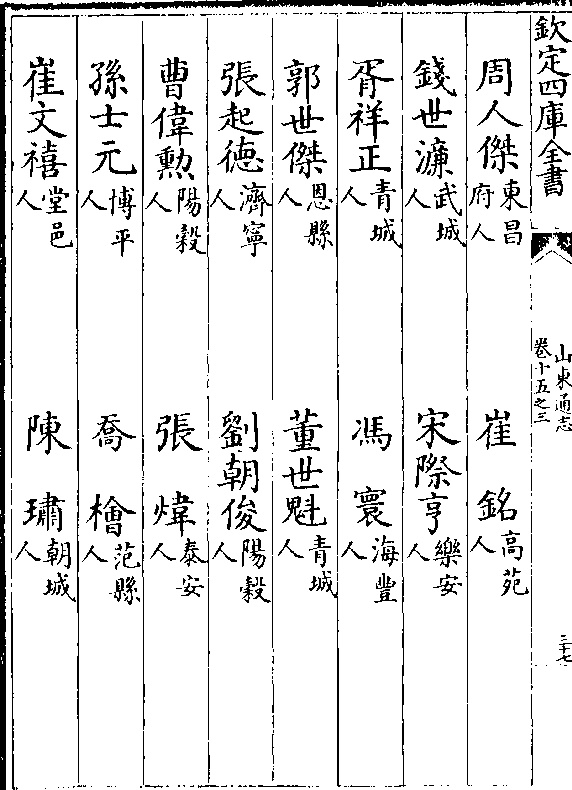 欽定四庫全書
山東通志
卷十五之三
三十七
周人傑東昌府人
崔銘高苑人
錢世濂武城人
宋際亨樂安人
胥祥正青城人
馮寰海豐人
郭世傑恩縣人
董世魁青城人
張起德濟寧人
劉朝俊陽穀人
曹偉勲陽穀人
張煒泰安人
孫士元博平人
喬檜范縣人
崔文禧堂邑人
陳璛朝城人